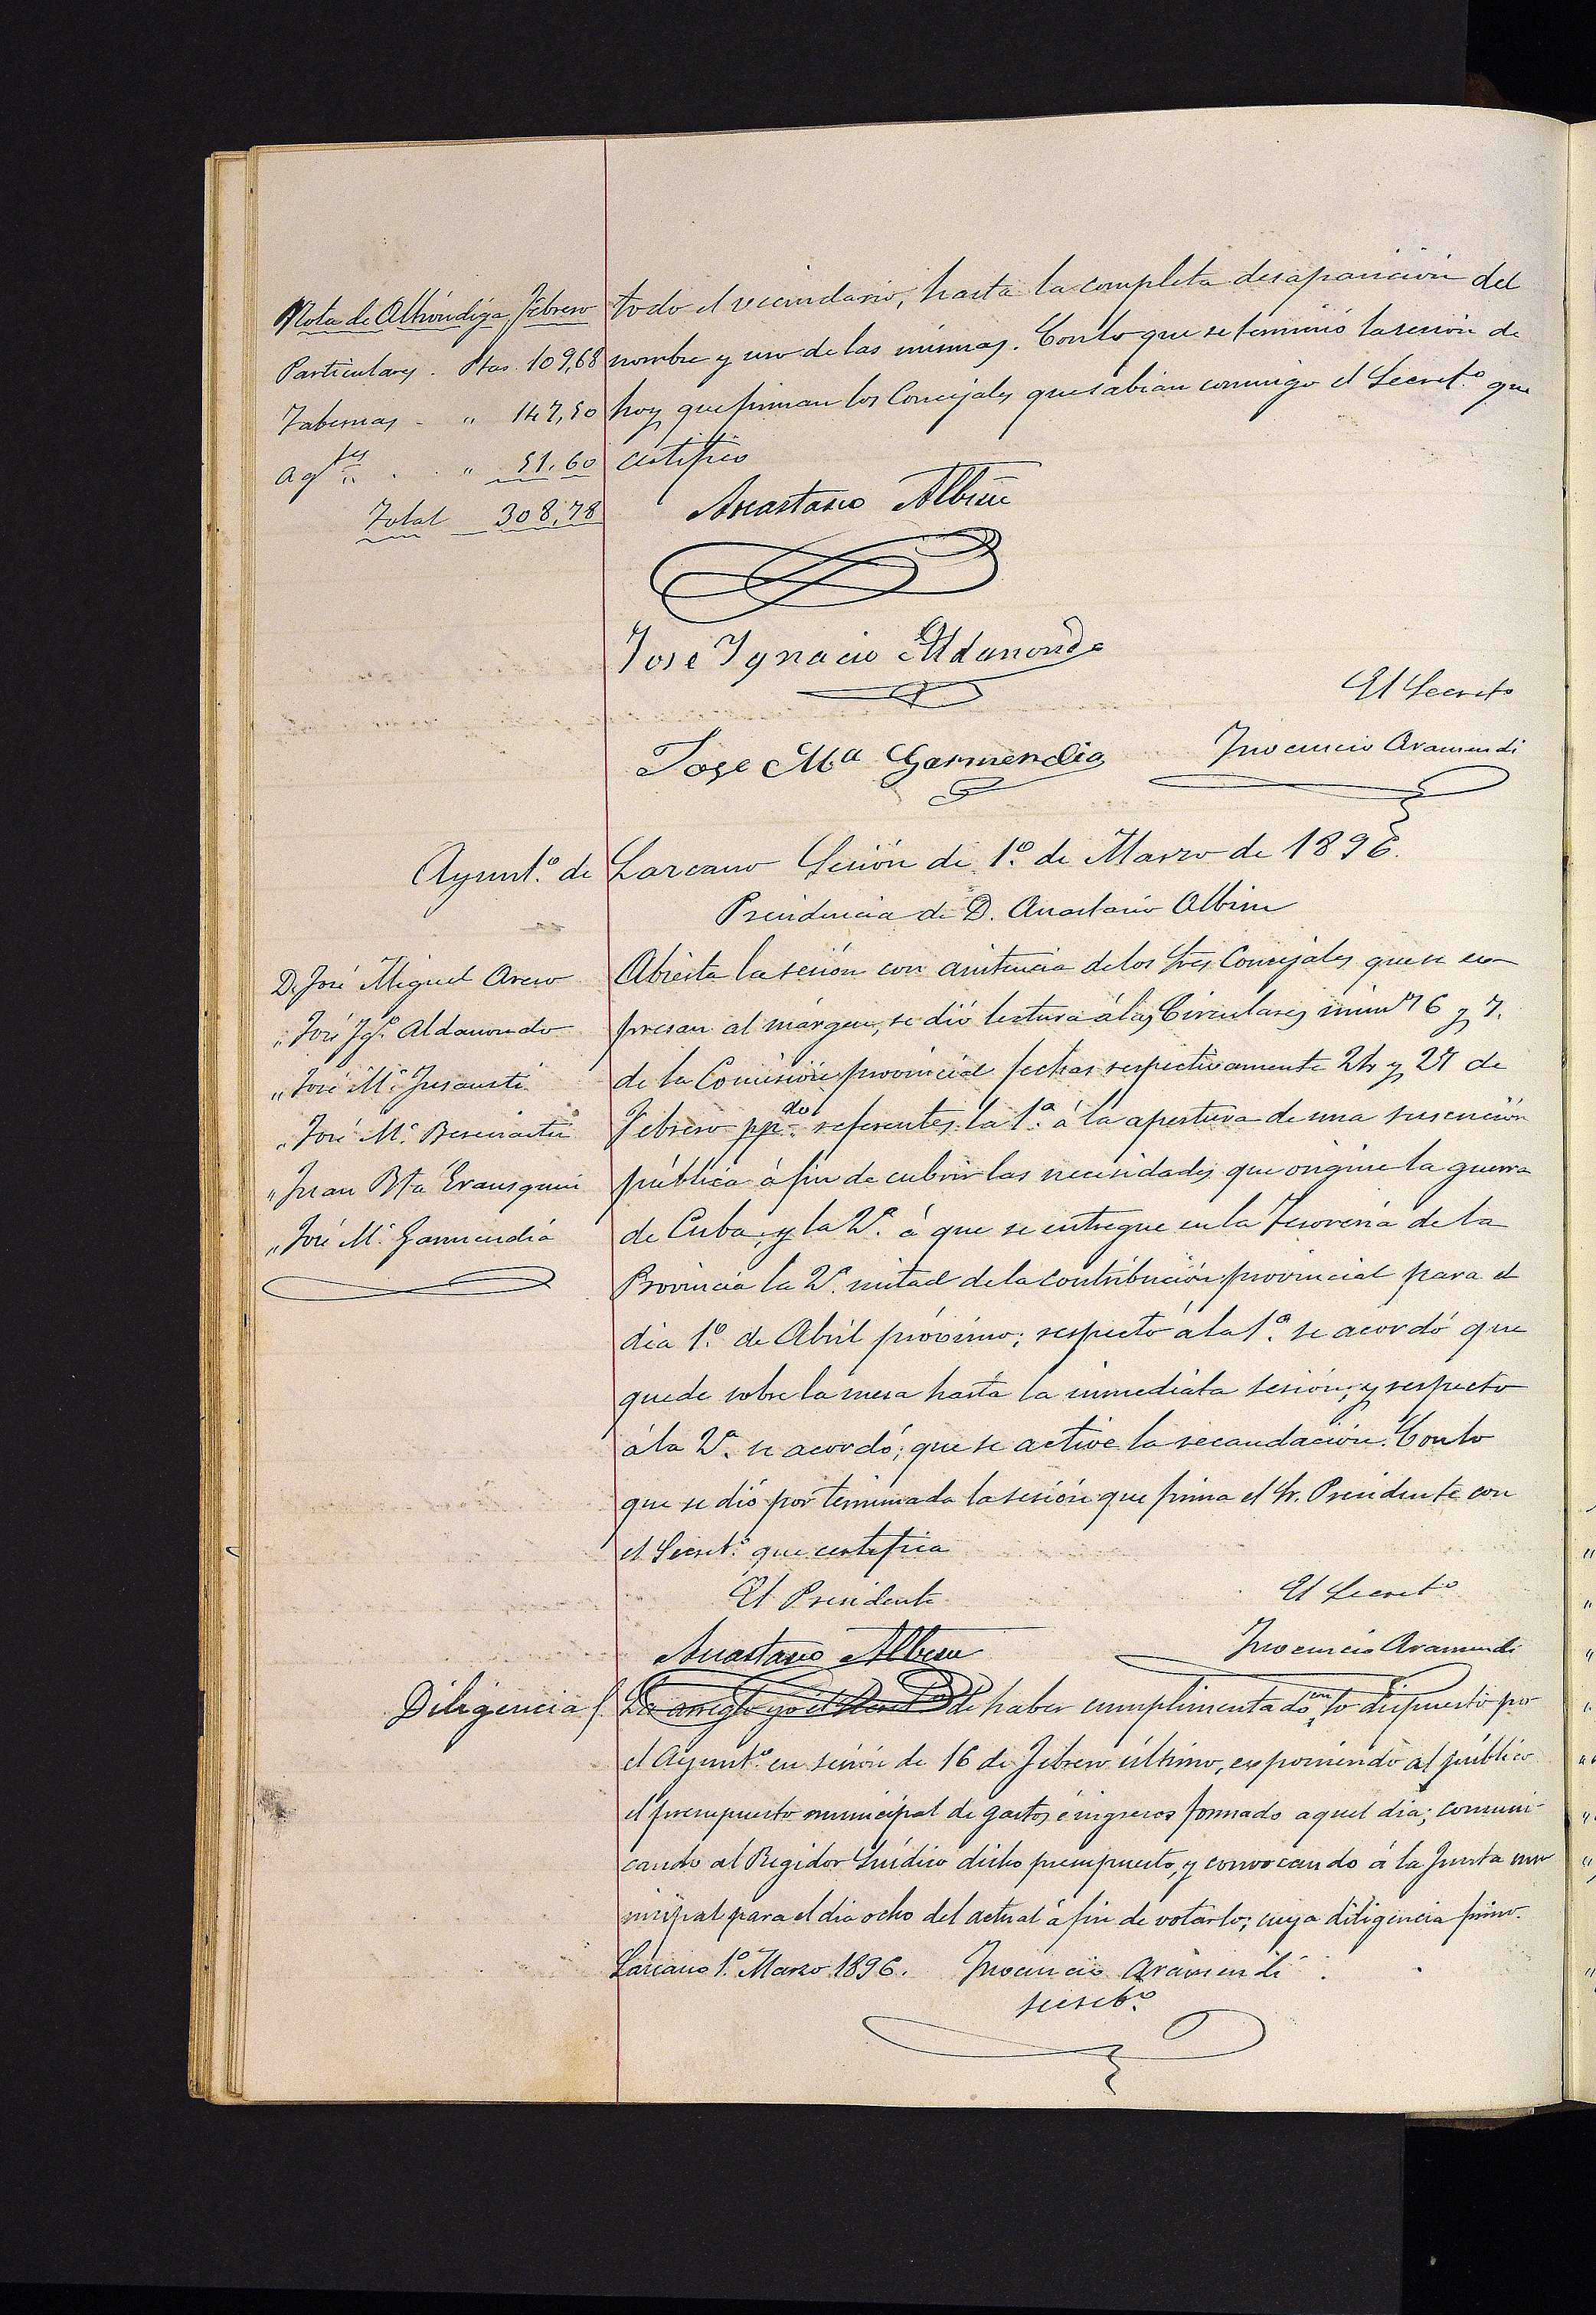 Nota de Alhóndiga, Febrero
Particulares . Ptas. 109,68
Tabernas . " 147,50
Ag.tes . " 51,60
Total 308,78
todo el vecindario, hasta la completa desaparición del
nombre y uso de las mismas. Con lo que se terminó la sesión de
hoy que firman los Concejales que sabian conmigo el Secret.o que
certifico
Anastasio Albisu
Jose Ygnacio Aldanondo
El Secreto
Jose Ma Garmendia
Inocencio Aramendi
Ayunt.o de Lazcano Sesión de 1.o de Marzo de 1896.
Presidencia de D. Anastasio Albisu
D. José Miguel
" José Ig.o Aldanondo
" José M.a Insausti
" José M.a
" Juan Bta Erausquin
" José M.a Garmendia
Abierta la sesión con asistencia de los Sres. Concejales que se es-
presan al márgen, se dió lectura á las Circulares núms 6 y 7.
de la Comisión provincial fechas respectivamente 24 y 27 de
Febrero pp.do referentes la 1.a á la apertura de una suscrición
pública á fin de cubrir las necesidades que origine la guerra
de Cuba, y la 2.a á que se entregue en la Tesoreria de la
Provincia la 2.a mitad de la contribución provincial para el
dia 1.o de Abril próximo; respecto á la 1.a se acordó que
quede sobre la mesa hasta la inmediata sesión; y respecto
á la 2.a se acordó; que se active la recaudación. Con lo
que se dió por terminada la sesión que firma el Sr. Presidente con
el Secret.o que certifica
El Presidente
El Secreto
Anastasio Albisu
Inocencio Aramendi
Diligencia La arreglo yo el Secret.o de haber cumplimentado en lo dispuesto por
el Ayunt.o en sesión de 16 de Febrero último, esponiendo al público
el presupuesto municipal de gastos é ingresos formado aquel dia; comuni-
cando al Regidor Síndico dicho presupuesto, y convocando á la Junta mu-
nicipal para el dia ocho del actual á fin de votarlo; cuya diligencia firmo.
Lazcano 1.o Marzo 1896. Inocencio Aramendi
secret.o